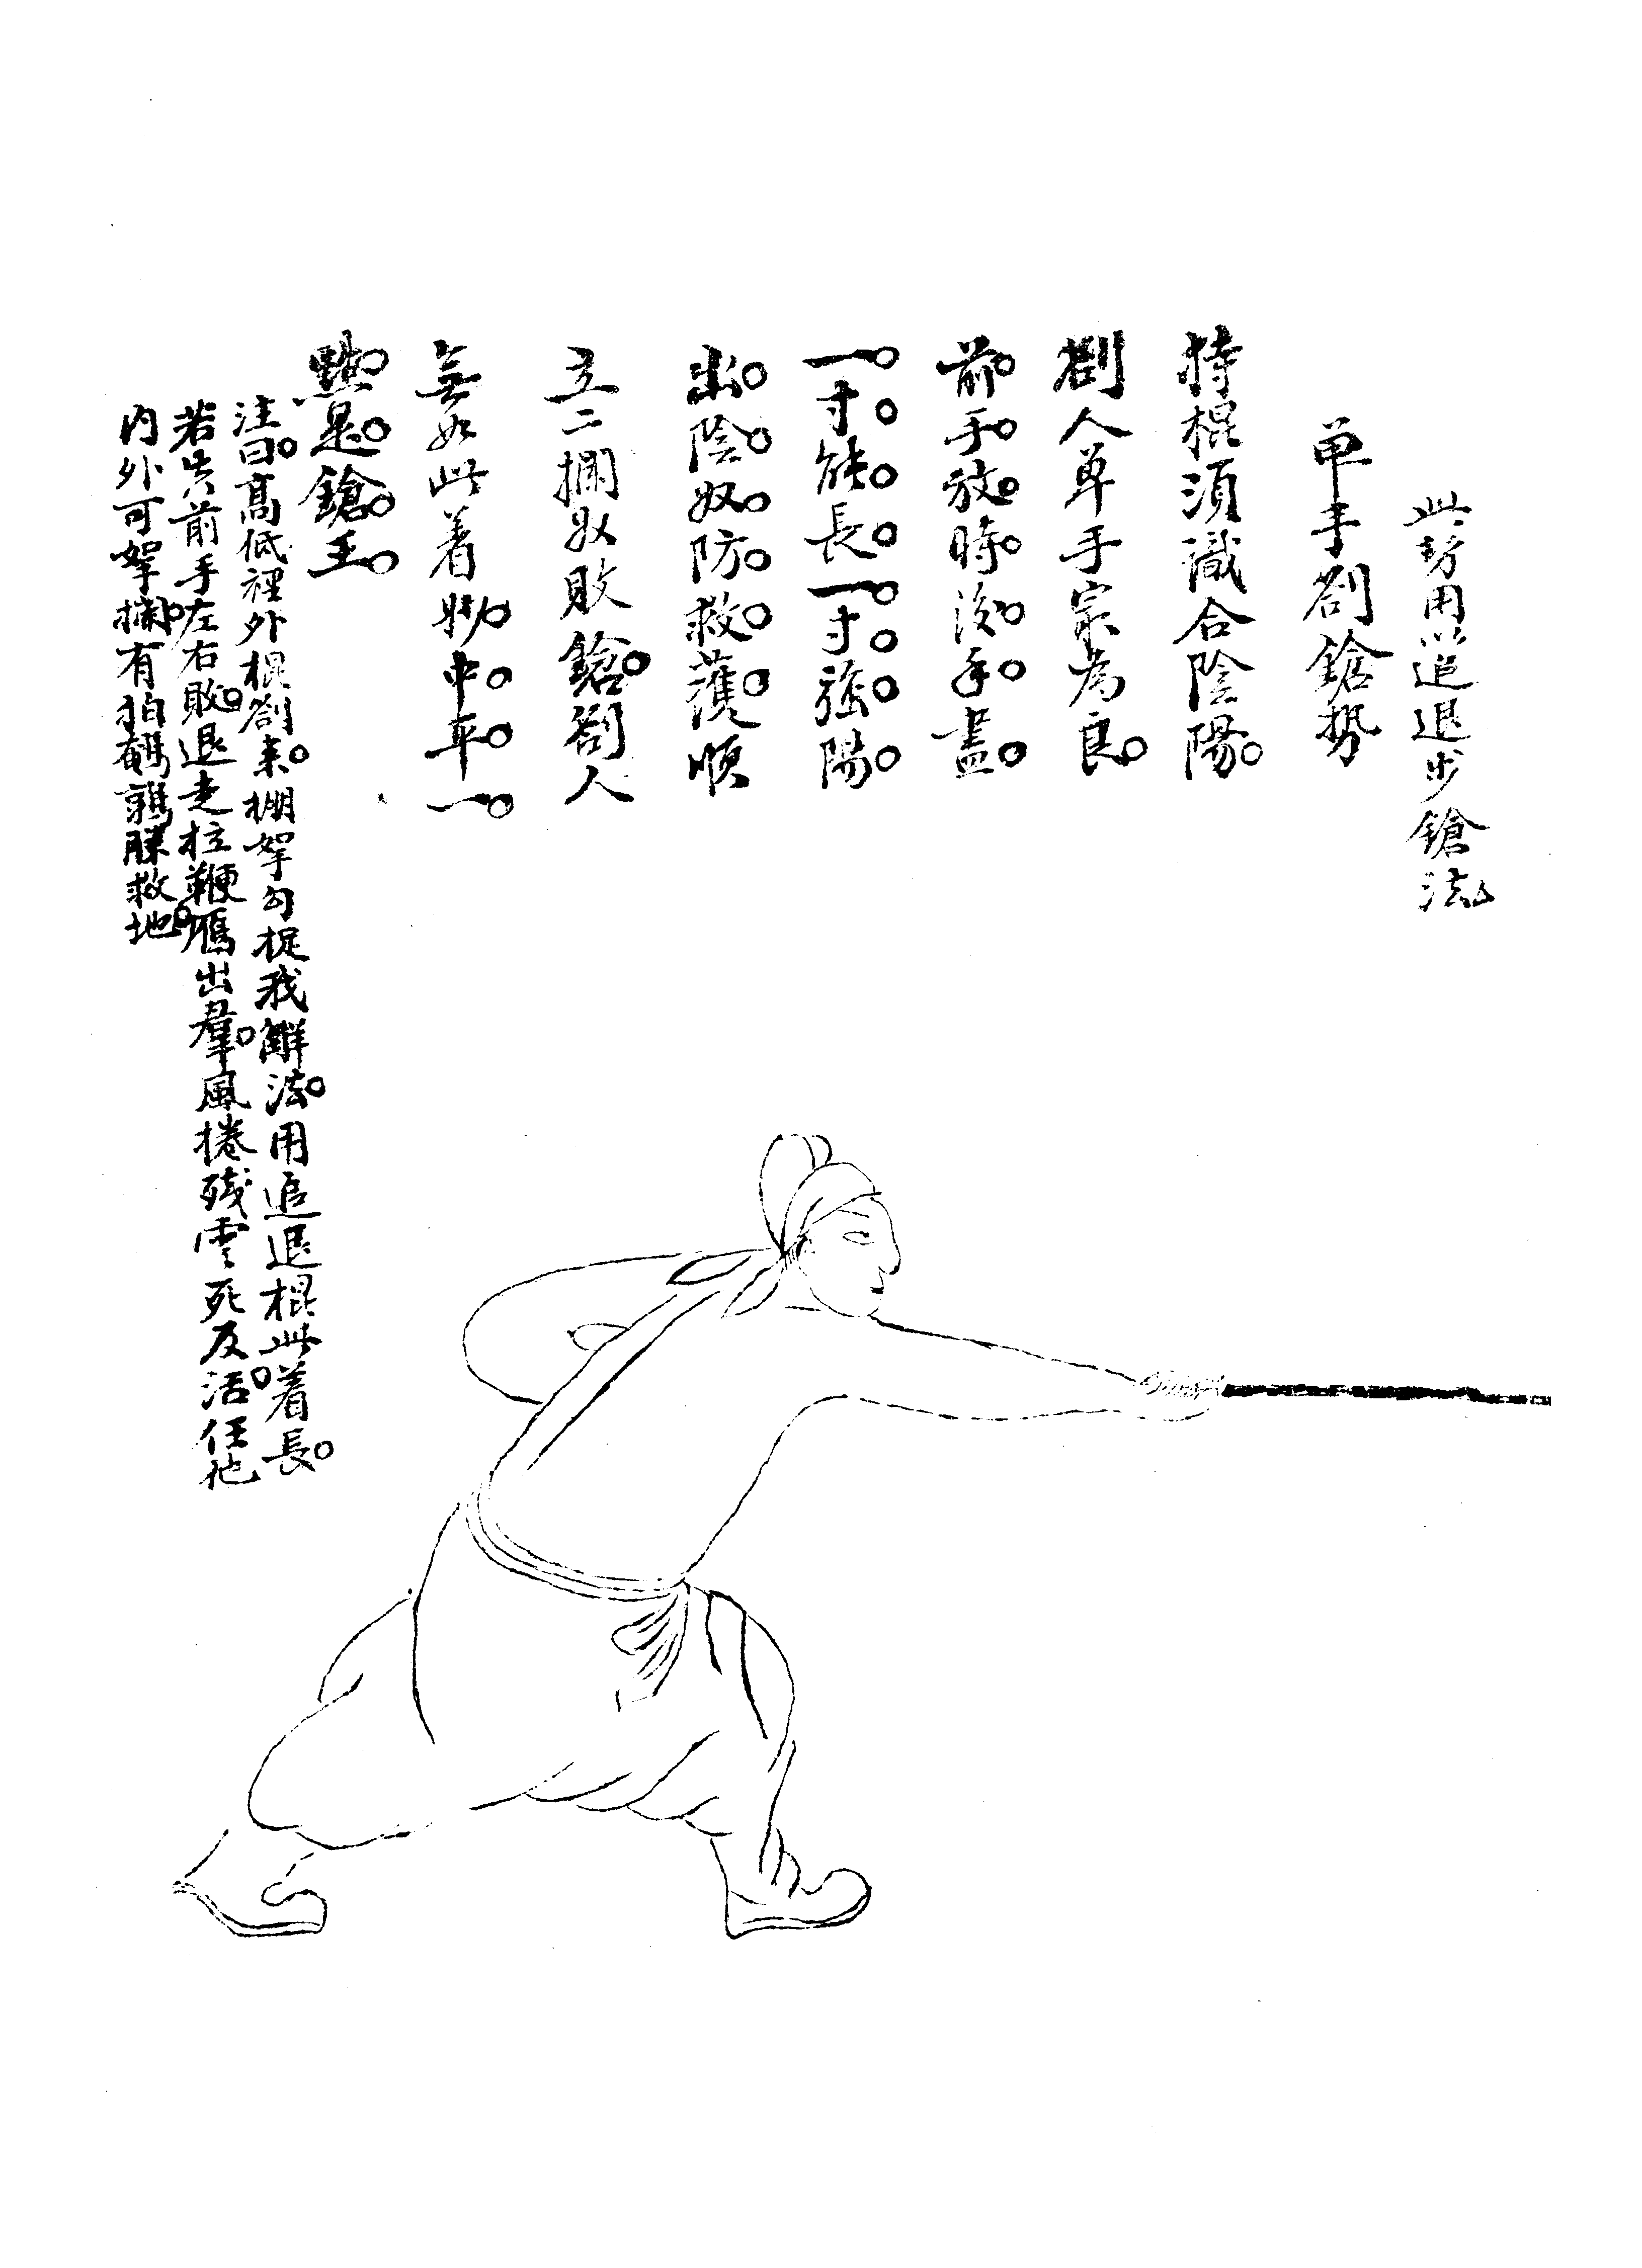 此勢用以追退步鎗法
单手劄鎗势
持棍須識合陰陽
劄人单手宗為良
前手放時後手盡
一寸能長一寸强陽
出陰収防救護順
立二攔収敗鎗劄人
無如此着妙中平一
點是鎗王
注曰高低裡外棍劄来棚拏勾捉我觧法用追退棍此着長
若失前手左右敗退走拉鞭雁出羣風捲殘雲死反活任他
内外可拏攔有拍鵪鶉膝救地